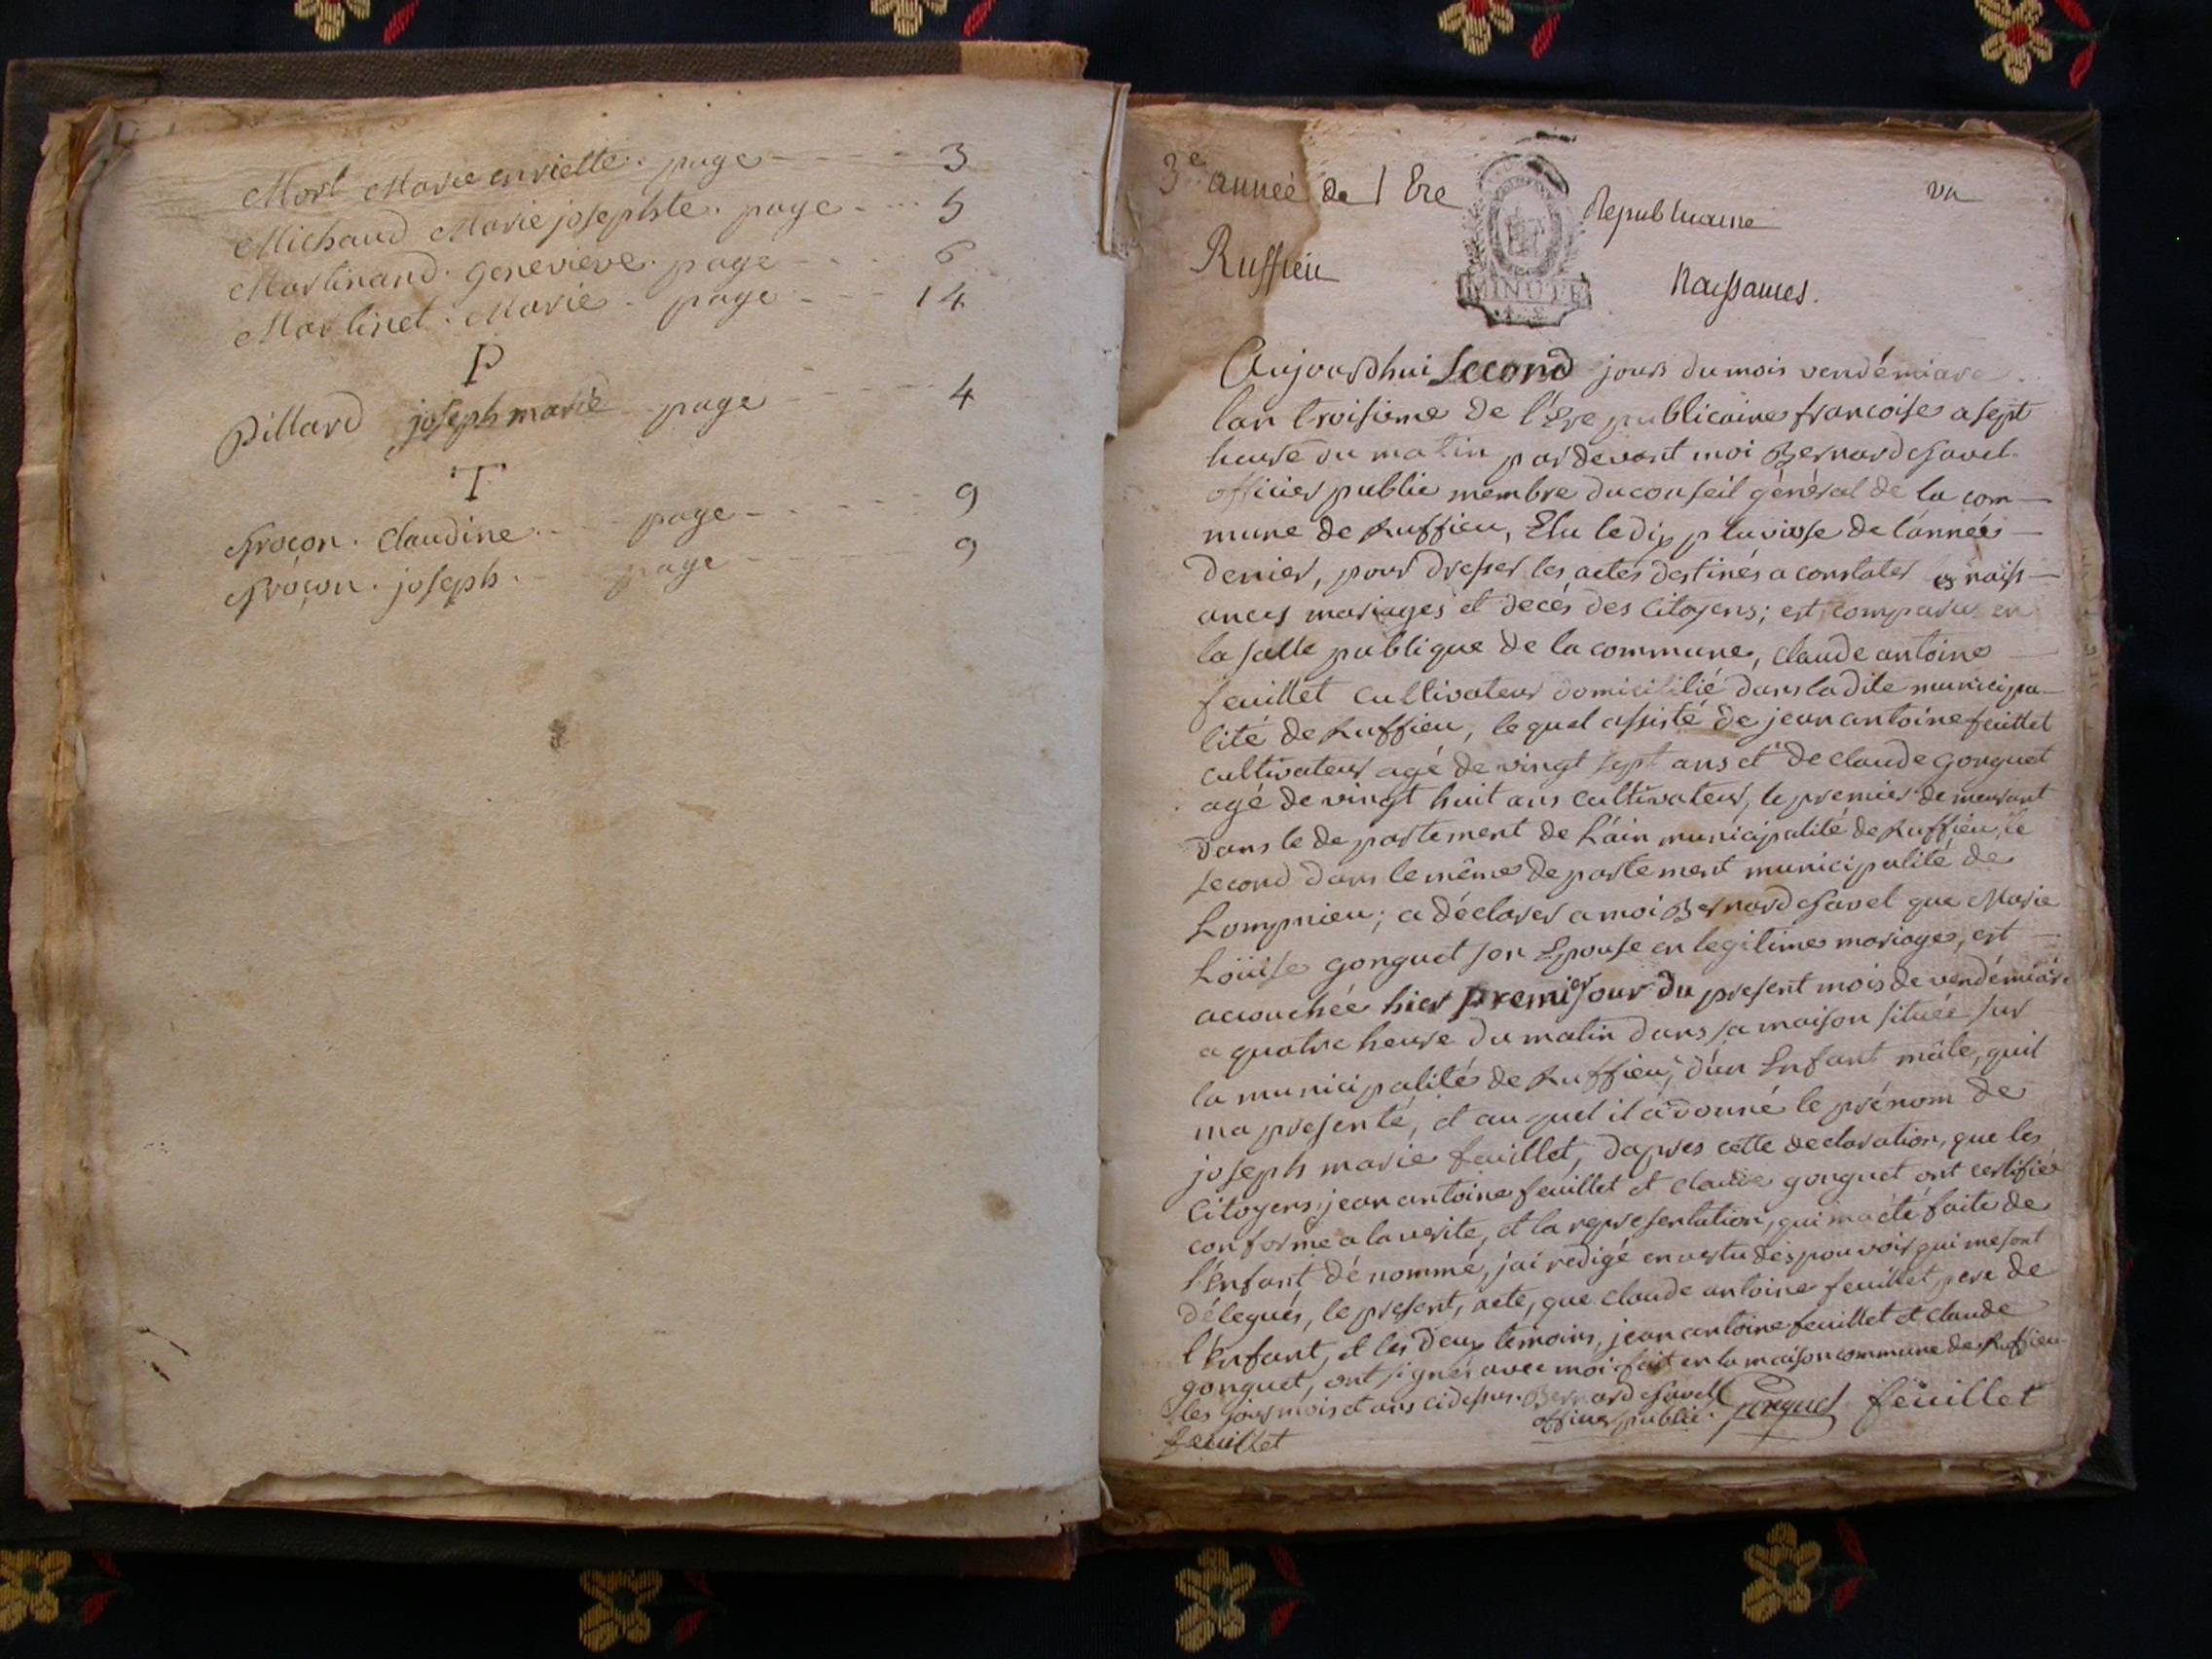 Mort Marie enriette. page - - - - 3
Michaud Marie josephte. page - - - 5
Martinand. Genevieve. page - - - 6
Martinet. Marie - page - - - 14
P
Pillard joseph marie page - - - 4
T
claudine - page - - - - 9
joseph. - page - - - 9
3e année de l Ere Republicaine
un
Ruffieu
MINUTE
Naissances.
Aujourdhui Second jours du mois vendémiare
lan troisieme de l'Ere publicaine francoise a sept
heure du matin par devant moi Bernard
officier public membre du conseil général de la com-
mune de Ruffieu, Elu le dix pluviose de l'année
denier, pour dresser les actes destinés a constater es naiss-
ances mariages et decés des citoyens; est comparu en
la salle publique de la commune, claude antoine
feuillet cultivateur domicilié dans la dite municipa-
lité de Ruffieu, le quel assisté de jean antoine feuillet
cultivateur agé de vingt sept ans et de claude gonguet
agé de vingt huit ans cultivateur, le premier demeurant
dans le departement de L'ain municipalité de Ruffieu, le
second dans le même departement municipalité de
Lompnieu; a déclarer a moi Bernard que Marie
Loüise gonguet son Epouse en legitime mariage, est
accouchée hier premier jour du present mois de vendémiare
a quatre heure du matin dans sa maison située sur
la municipalité de Ruffieu, d'un Enfant mâle, quil
ma presenté, et auquel il a donné le prénom de
joseph marie feuillet, dapres cette declaration, que les
Citoyens jean antoine feuillet et claude gonguet ont certifiée
conforme a la verite, et la representation, qui ma été faite de
l'Enfant dénommé, jai redigé en vertu des pouvoir qui me sont
délegués, le present, acte, que claude antoine feuillet pere de
l'Enfant, et les deux temoins, jean antoine feuillet et claude
gonguet, ont signés avec moi fait en la maison commune de Ruffieu
les jour mois et ans ci dessus. Bernard
officier public. gonguet feuillet
feuillet